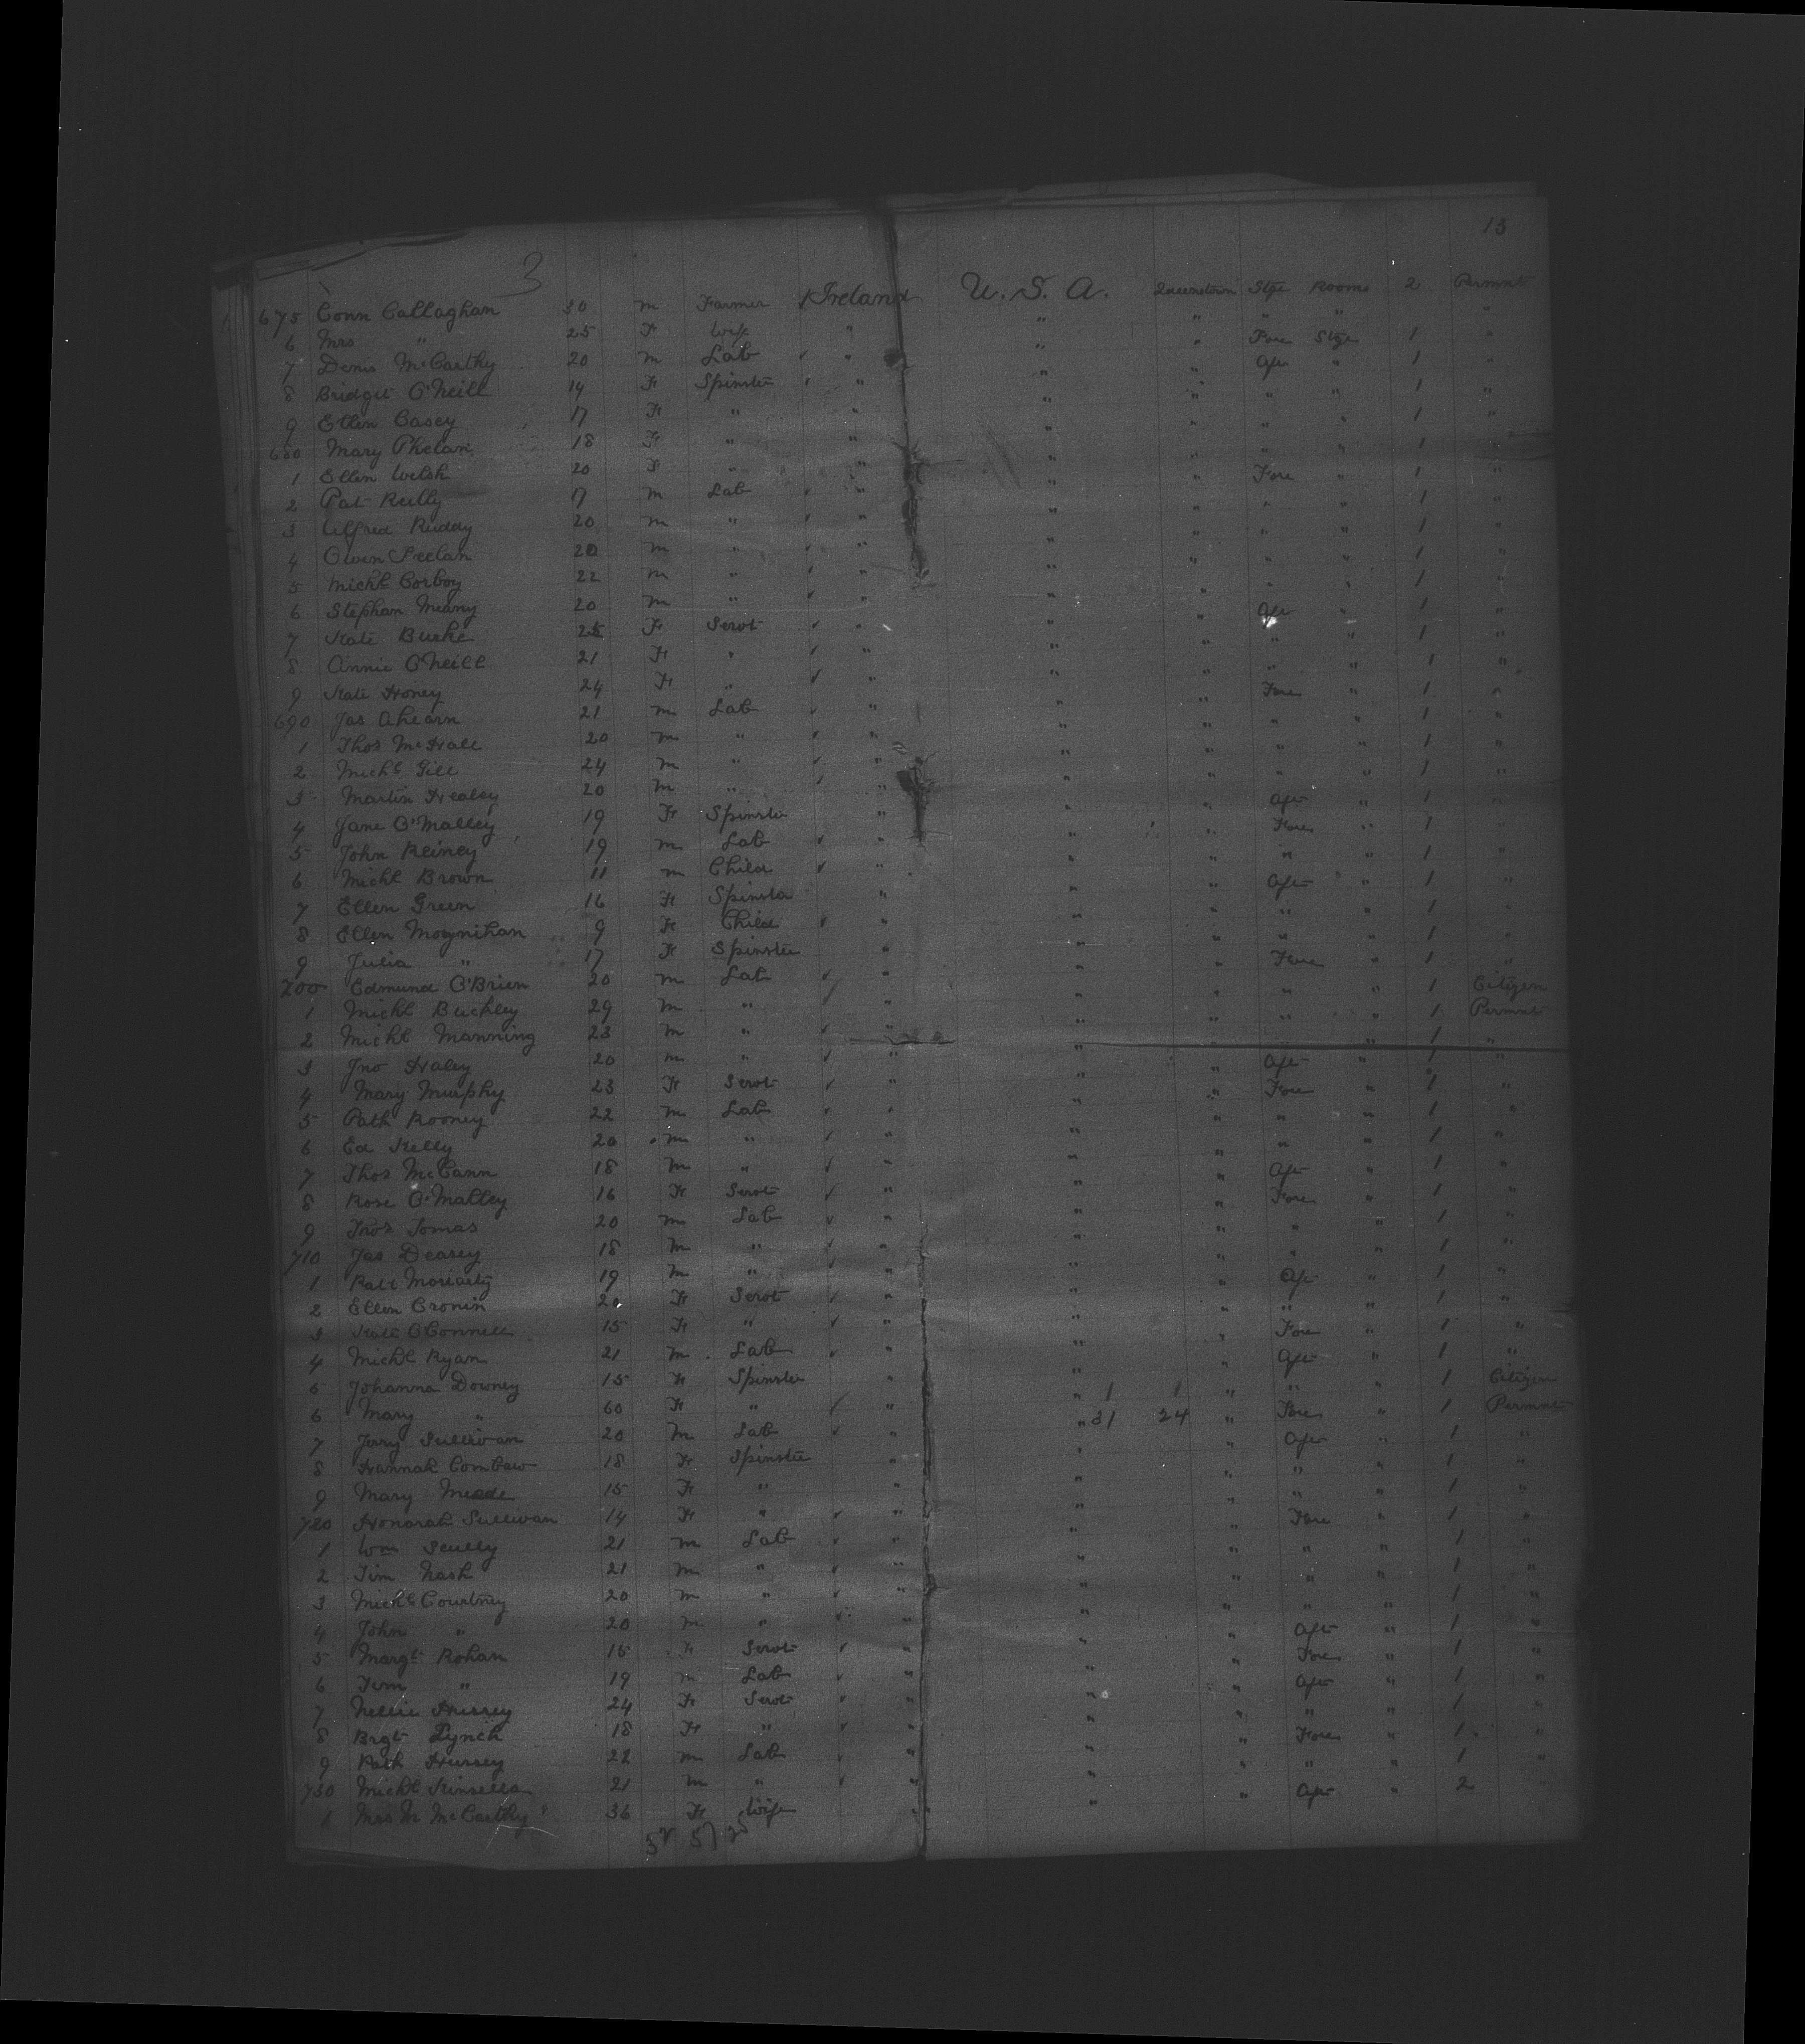 13
3
675 Conn Callaghan 30 m Farmer Ireland U. S. A. Queenstown Stge Rooms 2 Permnt
6 Mrs " 25 F Wife " " " " " "
7 Denis McCarthy 20 m Lab " " " Fore Stge 1 "
8 Bridget O'Neill 14 F Spinster " " " Aft " 1 "
9 Ellen Casey 17 F " " " " " " 1 "
680 Mary Phelan 18 F " " " " " " 1 "
1 Ellen Welsh 20 F " " " " " " 1 "
2 Pat Reilly 17 m Lab " " " Fore " 1 "
3 Alfred Ruddy 20 m " " " " " " 1 "
4 Owen Feelan 20 m " " " " " " 1 "
5 Michl Corboy 22 m " " " " " " 1 "
6 Stephan Meany 20 m " " " " " " 1 "
7 Kate Burke 25 F Servt " " " Aft " 1 "
8 Annie O'Neill 21 F " " " " " " 1 "
9 Kate Honey 24 F " " " " " " 1 "
690 Jas Ahearn 21 m Lab " " " Fore " 1 "
1 Thos McHale 20 m " " " " " " 1 "
2 Michl Gill 24 m " " " " " " 1 "
3 Martin Healey 20 m " " " " " " 1 "
4 Jane O'Malley 19 F Spinster " " " Aft " 1 "
5 John Reiney 19 m Lab " " " Fore " 1 "
6 Michl Brown 11 m Child " " " " " 1 "
7 Ellen Green 16 F Spinster " " " Aft " 1 "
8 Ellen Moynihan 9 F Child " " " " " 1 "
9 Julia " 17 F Spinster " " " " " 1 "
700 Edmund O'Brien 20 m Lab " " " Fore " 1 "
1 Michl Buckley 29 m " " " " " " 1 Citizen
2 Michl Manning 23 m " " " " " " 1 Permnt
3 Jno Haley 20 m " " " " " " 1 "
4 Mary Murphy 23 F Servt " " " Aft " 1 "
5 Patk Rooney 22 m Lab " " " Fore " 1 "
6 Ed Kelly 20 m " " " " " " 1 "
7 Thos McCann 18 m " " " " " " 1 "
8 Rose O'Malley 16 F Servt " " " Aft " 1 "
9 Thos Tomas 20 m Lab " " " Fore " 1 "
710 Jas Deasey 18 m " " " " " " 1 "
1 Patk Moriarty 19 m " " " " " " 1 "
2 Ellen Cronin 20 F Servt " " " Aft " 1 "
3 Kate O'Connell 15 F " " " " " " 1 "
4 Michl Ryan 21 m Lab " " " Fore " 1 "
5 Johanna Downey 15 F Spinster " " " Aft " 1 "
6 Mary " 60 F " " " 1 1 " " " 1 Citizen
7 Jerry Sullivan 20 m Lab " " 31 24 " Fore " 1 Permnt
8 Hannah Combaw 18 F Spinster " " " Aft " 1 "
9 Mary Meade 15 F " " " " " " 1 "
720 Honorah Sullivan 14 F " " " " " " 1 "
1 Wm Scully 21 m Lab " " " Fore " 1 "
2 Tim Nash 21 m " " " " " " 1 "
3 Michl Courtney 20 m " " " " " " 1 "
4 John " 20 m " " " " " " 1 "
5 Margt Rohan 15 F Servt " " " Aft " 1 "
6 Tim " 19 m Lab " " " Fore " 1 "
7 Nellie Hussey 24 F Servt " " " Aft " 1 "
8 Brgt Lynch 18 F " " " " " " 1 "
9 Patk Hussey 22 m Lab " " " Fore " 1 "
730 Michl Kinsella 21 m " " " " " " 1 "
1 Mrs M McCarthy 36 F Wife " " " Aft " 2
57